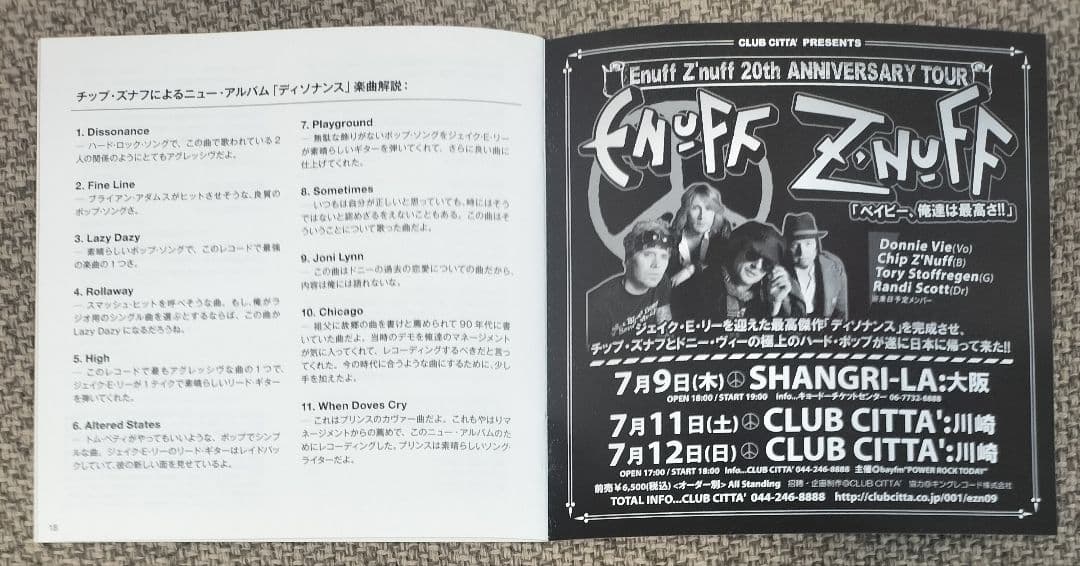 チップ・ズナフによるニュー・アルバム「ディソナンス」楽曲解説：
1. Dissonance
― ハード・ロック・ソングで、この曲で歌われている2
人の関係のようにとてもアグレッシヴだよ。
2. Fine Line
― ブライアン・アダムスがヒットさせそうな、良質の
ポップ・ソングさ。
3. Lazy Dazy
― 素晴らしいポップ・ソングで、このレコードで最強
の楽曲の1つさ。
4. Rollaway
― スマッシュ・ヒットを呼べそうな曲。もし、俺がラ
ジオ用のシングル曲を選ぶとするならば、この曲か
Lazy Dazyになるだろうね。
5. High
― このレコードで最もアグレッシヴな曲の1つで、
ジェイク・E・リーが1テイクで素晴らしいリード・ギター
を弾いてくれた。
6. Altered States
― トム・ペティがやってもいいような、ポップでシンプ
ルな曲。ジェイク・E・リーのリード・ギターはレイドバッ
クしていて、彼の新しい面を見せているよ。
18
7. Playground
― 無駄な飾りがないポップ・ソングをジェイク・E・リー
が素晴らしいギターを弾いてくれて、さらに良い曲に
仕上げてくれた。
8. Sometimes
― いつもは自分が正しいと思っていても、時にはそう
ではないと認めざるをえないこともある。この曲はそ
ういうことについて歌った曲だよ。
9. Joni Lynn
― この曲はドニーの過去の恋愛についての曲だから、
内容は俺には語れないな。
10. Chicago
― 祖父に故郷の曲を書けと薦められて90年代に書
いていた曲だよ。当時のデモを俺達のマネージメント
が気に入ってくれて、レコーディングするべきだと言っ
てくれた。今の時代に合うような曲にするために、少し
手を加えたよ。
11. When Doves Cry
― これはプリンスのカヴァー曲だよ。これもやはりマ
ネージメントからの薦めで、このニュー・アルバムのた
めにレコーディングした。プリンスは素晴らしいソング・
ライターだよ。
CLUB CITTA' PRESENTS
Enuff Z'nuff 20th ANNIVERSARY TOUR
ENUFF Z'NUFF
「ベイビー、俺達は最高さ!!」
Donnie Vie(Vo)
Chip Z'Nuff(B)
Tory Stoffregen(G)
Randi Scott(Dr)
※来日予定メンバー
ジェイク・E・リーを迎えた最高傑作「ディソナンス」を完成させ、
チップ・ズナフとドニー・ヴィーの極上のハード・ポップが遂に日本に帰って来た!!
7月9日(木) SHANGRI-LA:大阪
OPEN 18:00 / START 19:00 Info...キョードーチケットセンター 06-7732-8888
7月11日(土) CLUB CITTA':川崎
7月12日(日) CLUB CITTA':川崎
OPEN 17:00 / START 18:00 Info...CLUB CITTA' 044-246-8888 主催◎bayfm"POWER ROCK TODAY"
前売￥6,500(税込) <オーダー別> All Standing 招聘・企画制作◎CLUB CITTA' 協力◎キングレコード株式会社
TOTAL INFO...CLUB CITTA' 044-246-8888 http://clubcitta.co.jp/001/ezn09